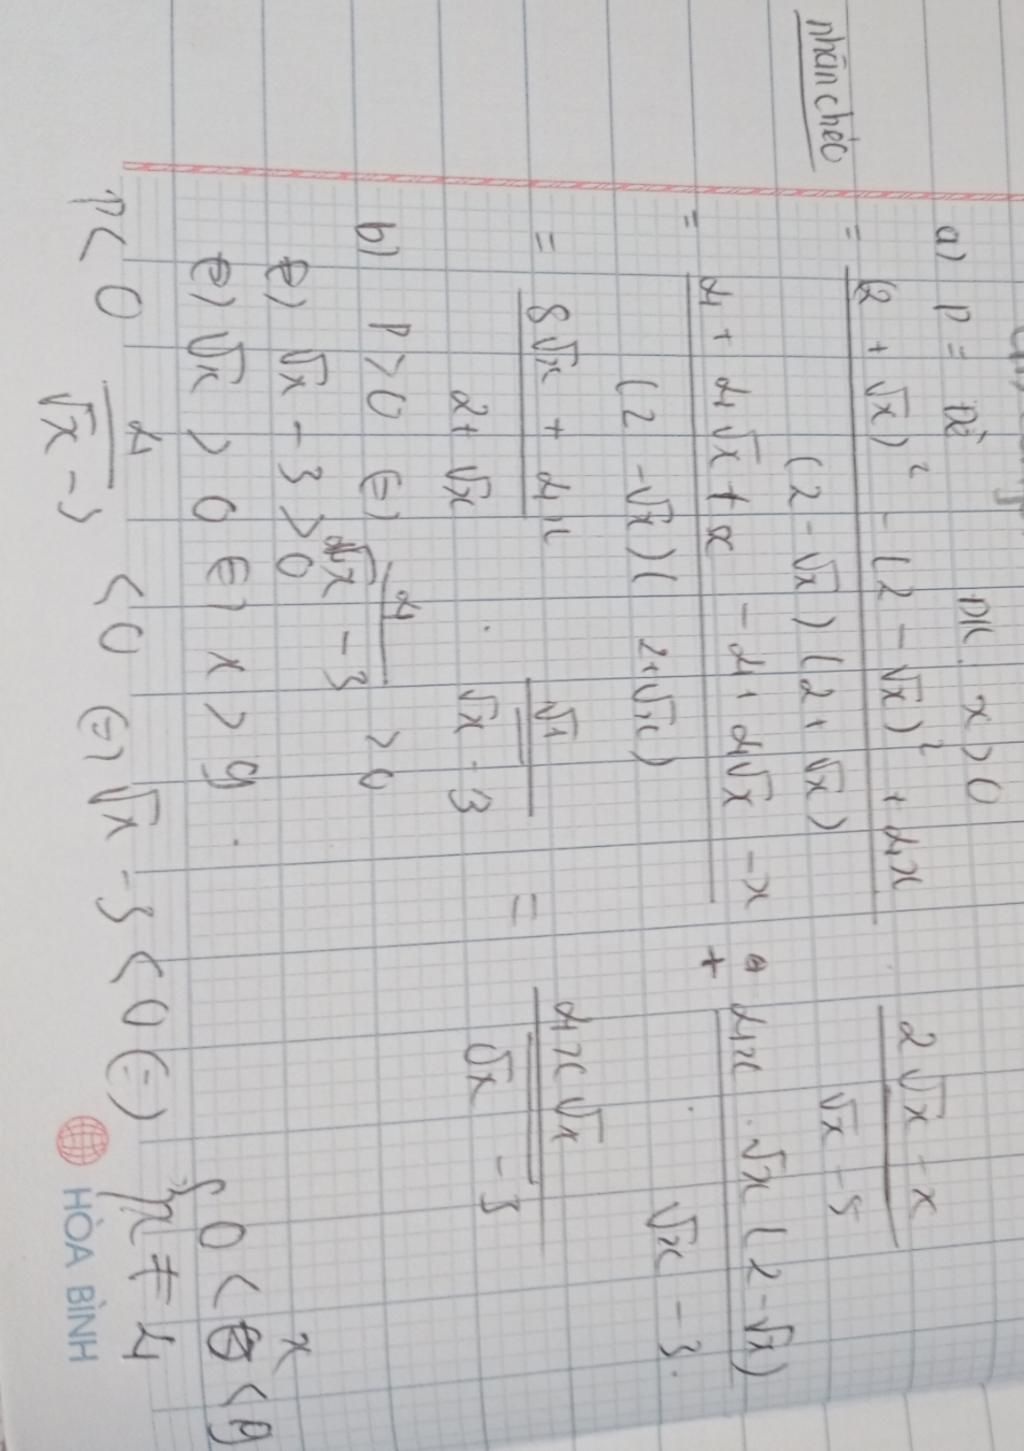 nhân chéo
a) P = Đề ĐK: x > 0
= (2 + √x)² - (2 - √x)² + 4x / (2 - √x)(2 + √x) . 2√x - x / √x - 3
= 4 + 4√x + x - 4 + 4√x - x + 4x / (2 - √x)(2+√x) . √x(2-√x) / √x - 3.
= 8√x + 4x / 2+ √x . √x / √x - 3 = 4x√x / √x - 3
b) P > 0 (=) 4 / √x - 3 > 0
(=) √x - 3 > 0
(=) √x > 0 (=) x > 9.
P < 0 4 / √x - 3 < 0 (=) √x - 3 < 0 (=) { 0 < x < 9
x ≠ 4
HÒA BÌNH